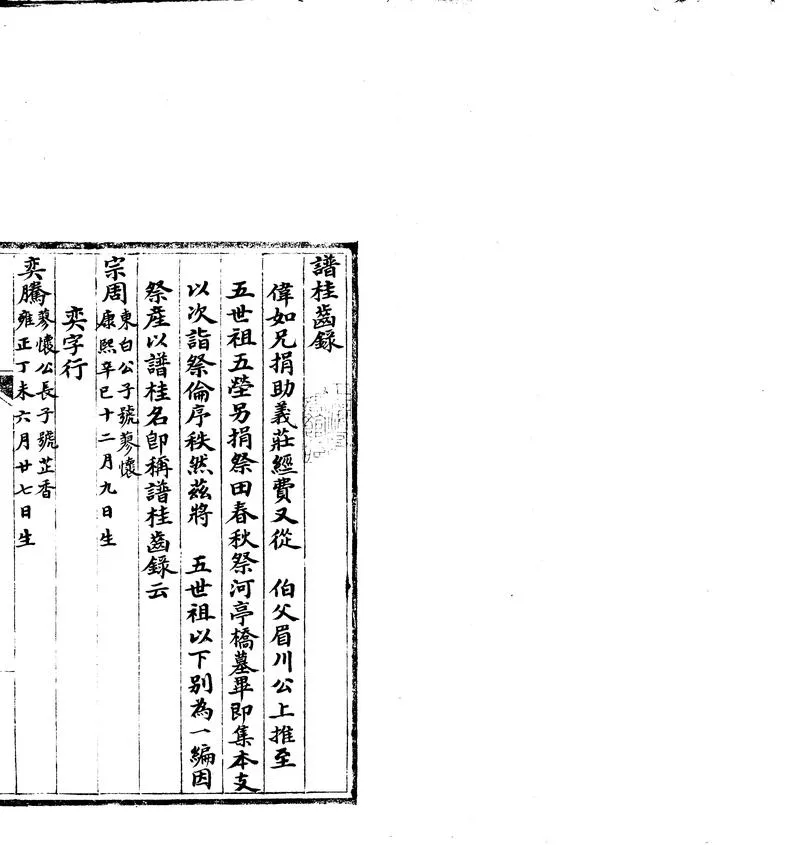 譜桂齒錄
偉如兄捐助義莊經費又從 伯父眉川公上推至
五世祖五瑩另捐祭田春秋祭河亭橋墓畢即集本支
以次詣祭倫序秩然茲將 五世祖以下別為一編因
祭產以譜桂名卽稱譜桂齒錄云
宗周 東白公子號蓼懷
康熙辛巳十二月九日生
奕字行
奕騰 蓼懷公長子號芷香
雍正丁未六月廿七日生